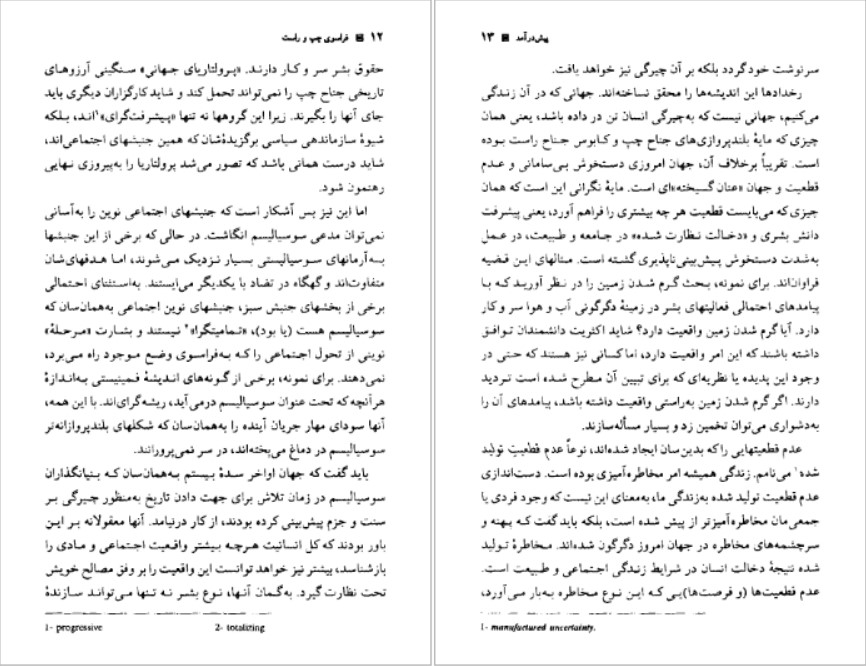 ۱۲ ■ فراسوی چپ و راست
حقوق بشر سر و کار دارند. «پرولتاریای جهانی» سنگینی آرزوهای
تاریخی جناح چپ را نمی‌تواند تحمل کند و شاید کارگزاران دیگری باید
جای آنها را بگیرند. زیرا این گروهها نه تنها «پیشرفت‌گرای»¹اند، بلکه
شیوهٔ سازماندهی سیاسی برگزیده‌شان که همین جنبشهای اجتماعی‌اند،
شاید درست همانی باشد که تصور می‌شد پرولتاریا را به‌پیروزی نهایی
رهنمون شود.
اما این نیز بس آشکار است که جنبشهای اجتماعی نوین را به‌آسانی
نمی‌توان مدعی سوسیالیسم انگاشت. در حالی که برخی از این جنبشها
به‌آرمانهای سوسیالیستی بسیار نزدیک می‌شوند، اما هدفهای‌شان
متفاوت‌اند و گهگاه در تضاد با یکدیگر می‌ایستند. به‌استثنای احتمالی
برخی از بخشهای جنبش سبز، جنبشهای نوین اجتماعی به‌همان‌سان که
سوسیالیسم هست (یا بود)، «تمامیتگرا»² نیستند و بشارت «مرحلهٔ»
نوینی از تحول اجتماعی را که به‌فراسوی وضع موجود راه می‌برد،
نمی‌دهند. برای نمونه، برخی از گونه‌های اندیشهٔ فمینیستی به‌اندازهٔ
هرآنچه که تحت عنوان سوسیالیسم درمی‌آید، ریشه‌گرای‌اند. با این همه،
آنها سودای مهار جریان آینده را به‌همان‌سان که شکلهای بلندپروازانه‌تر
سوسیالیسم در دماغ می‌پخته‌اند، در سر نمی‌پرورانند.
باید گفت که جهان اواخر سدهٔ بیستم به‌همان‌سان که بنیانگذاران
سوسیالیسم در زمان تلاش برای جهت دادن تاریخ به‌منظور چیرگی بر
سنت و جزم پیش‌بینی کرده بودند، از کار درنیامد. آنها معقولانه بر این
باور بودند که کل انسانیت هرچه بیشتر واقعیت اجتماعی و مادی را
بازشناسد، بیشتر نیز خواهد توانست این واقعیت را بر وفق مصالح خویش
تحت نظارت گیرد. به‌گمان آنها، نوع بشر نه تنها می‌تواند سازندهٔ
1- progressive 2- totalizing
پیش‌درآمد ■ ۱۳
سرنوشت خود گردد بلکه بر آن چیرگی نیز خواهد یافت.
رخدادها این اندیشه‌ها را محقق نساخته‌اند. جهانی که در آن زندگی
می‌کنیم، جهانی نیست که به‌چیرگی انسان تن در داده باشد، یعنی همان
چیزی که مایهٔ بلندپروازی‌های جناح چپ و کابوس جناح راست بوده
است. تقریباً برخلاف آن، جهان امروزی دستخوش بی‌سامانی و عدم
قطعیت و جهان «عنان گسیخته»ای است. مایهٔ نگرانی این است که همان
چیزی که می‌بایست قطعیت هر چه بیشتری را فراهم آورد، یعنی پیشرفت
دانش بشری و «دخالت نظارت شده» در جامعه و طبیعت، در عمل
به‌شدت دستخوش پیش‌بینی‌ناپذیری گشته است. مثالهای این قضیه
فراوان‌اند. برای نمونه، بحث گرم شدن زمین را در نظر آورید که با
پیامدهای احتمالی فعالیتهای بشر در زمینهٔ دگرگونی آب و هوا سر و کار
دارد. آیا گرم شدن زمین واقعیت دارد؟ شاید اکثریت دانشمندان توافق
داشته باشند که این امر واقعیت دارد، اما کسانی نیز هستند که حتی در
وجود این پدیده یا نظریه‌ای که برای تبیین آن مطرح شده است تردید
دارند. اگر گرم شدن زمین به‌راستی واقعیت داشته باشد، پیامدهای آن را
به‌دشواری می‌توان تخمین زد و بسیار مسأله‌سازند.
عدم قطعیتهایی را که بدین‌سان ایجاد شده‌اند، نوعاً عدم قطعیتِ تولید
شده¹ می‌نامم. زندگی همیشه امر مخاطره‌آمیزی بوده است. دست‌اندازی
عدم قطعیت تولید شده به‌زندگی ما، به‌معنای این نیست که وجود فردی یا
جمعی‌مان مخاطره‌آمیزتر از پیش شده است، بلکه باید گفت که پهنه و
سرچشمه‌های مخاطره در جهان امروز دگرگون شده‌اند. مخاطرهٔ تولید
شده نتیجهٔ دخالت انسان در شرایط زندگی اجتماعی و طبیعت است.
عدم قطعیت‌ها (و فرصت‌ها)یی که این نوع مخاطره به‌بار می‌آورد،
1- manufactured uncertainty.